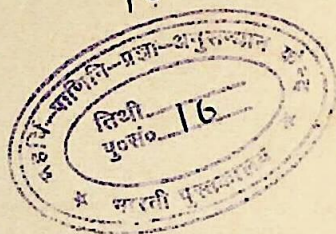 महर्षि-पाणिनि-प्रज्ञा-अनुसन्धान केन्द्र
तिथी
पु०सं० 16
* भारती पुस्तकालय *